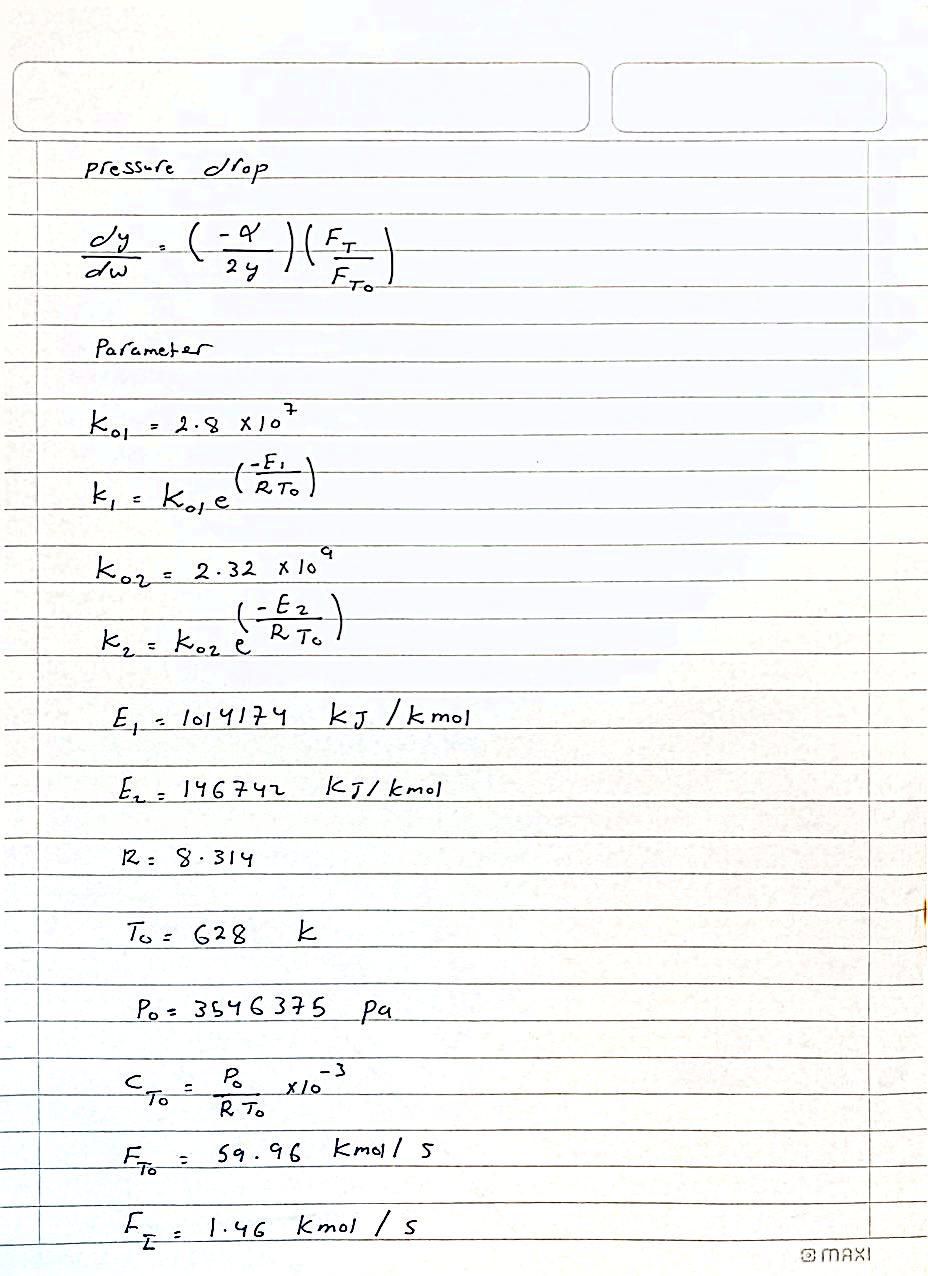 pressure drop
dy/dw = (-α/2y)(F_T/F_To)
Parameter
K_01 = 2.8 x10^7
k_1 = K_01 e^(-E_1/R To)
K_02 = 2.32 x10^9
K_2 = K_02 e^(-E_2/R To)
E_1 = 1014174 kJ /kmol
E_2 = 146742 KJ/kmol
R = 8.314
To = 628 k
Po = 3546375 pa
C_To = Po/R To x10^-3
F_To = 59.96 Kmol/s
F_I = 1.46 Kmol / s
MAXI